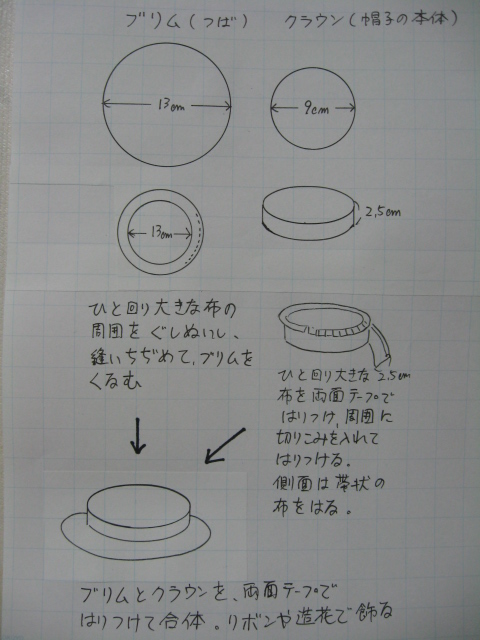 ブリム(つば)
クラウン(帽子の本体)
13cm
9cm
13cm
2.5cm
ひと回り大きな布の
周囲をぐしぬいし、
縫いちぢめて、ブリムを
くるむ
2.5cm
ひと回り大きな
布を両面テープで
はりつけ、周囲に
切りこみを入れて
はりつける。
側面は帯状の
布をはる。
ブリムとクラウンを、両面テープで
はりつけて合体。リボンや造花で飾る